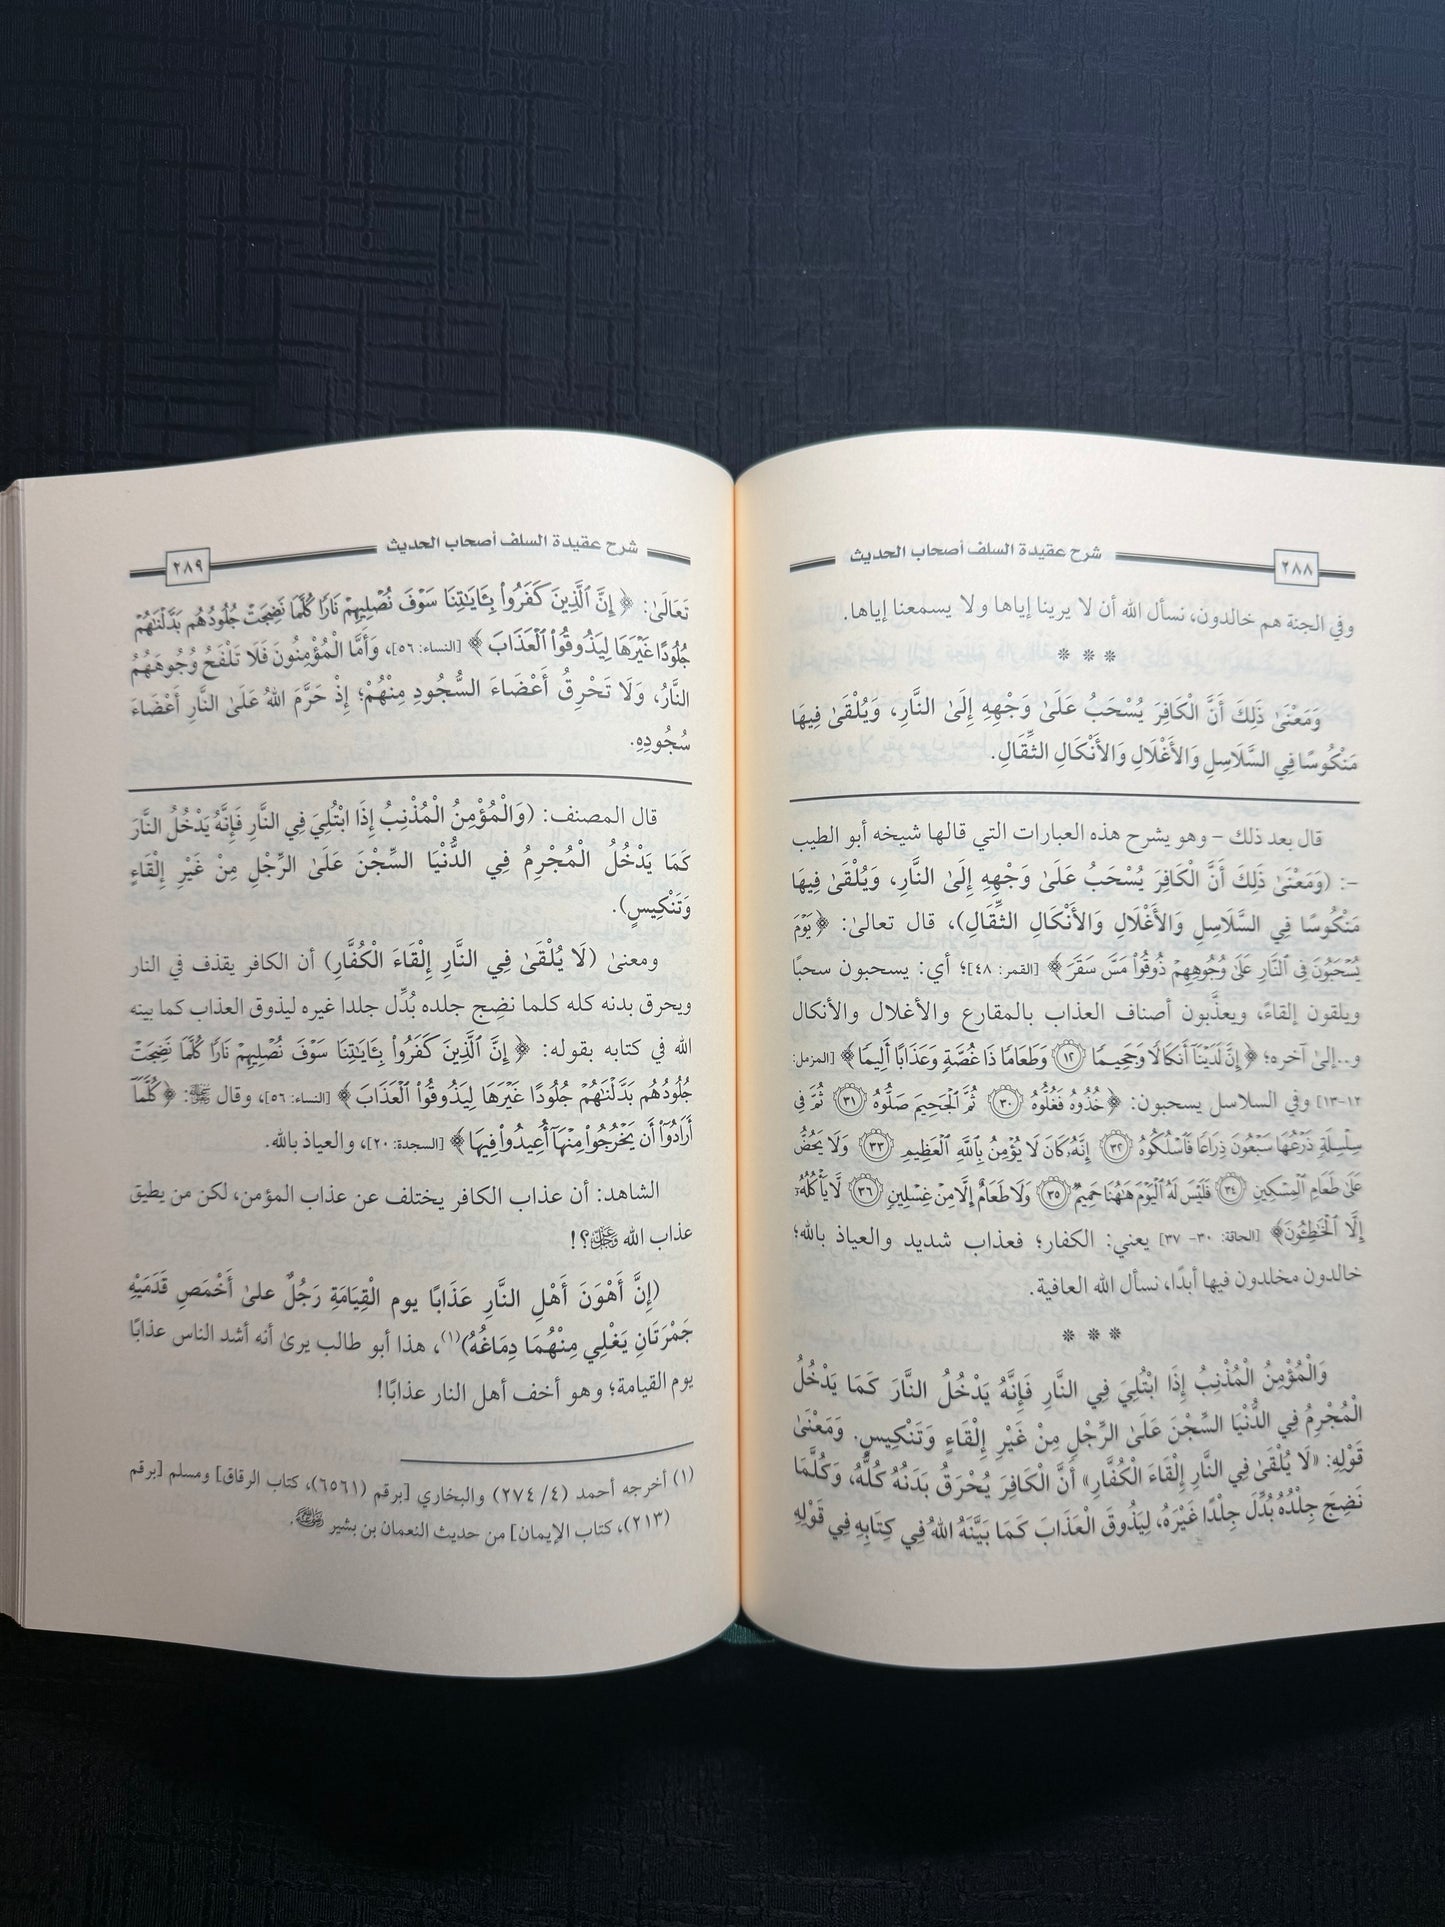 ٢٨٨
شرح عقيدة السلف أصحاب الحديث
وفي الجنة هم خالدون، نسأل الله أن لا يرينا إياها ولا يسمعنا إياها.
* * *
وَمَعْنَىٰ ذَلِكَ أَنَّ الْكَافِرَ يُسْحَبُ عَلَىٰ وَجْهِهِ إِلَىٰ النَّارِ، وَيُلْقَىٰ فِيهَا
مَنْكُوسًا فِي السَّلَاسِلِ وَالأَغْلَالِ وَالأَنْكَالِ الثِّقَالِ.
قال بعد ذلك – وهو يشرح هذه العبارات التي قالها شيخه أبو الطيب
–: (وَمَعْنَىٰ ذَلِكَ أَنَّ الْكَافِرَ يُسْحَبُ عَلَىٰ وَجْهِهِ إِلَىٰ النَّارِ، وَيُلْقَىٰ فِيهَا
مَنْكُوسًا فِي السَّلَاسِلِ وَالأَغْلَالِ وَالأَنْكَالِ الثِّقَالِ)، قال تعالىٰ: ﴿يَوْمَ
يُسْحَبُونَ فِي النَّارِ عَلَىٰ وُجُوهِهِمْ ذُوقُوا۟ مَسَّ سَقَرَ﴾ [القمر: ٤٨]؛ أي: يسحبون سحبًا
ويلقون إلقاءً، ويعذَّبون أصناف العذاب بالمقارع والأغلال والأنكال
و..إلىٰ آخره؛ ﴿إِنَّ لَدَيْنَآ أَنكَالًا وَجَحِيمًا ۝١٢ وَطَعَامًا ذَا غُصَّةٍ وَعَذَابًا أَلِيمًا﴾ [المزمل:
١٢-١٣] وفي السلاسل يسحبون: ﴿خُذُوهُ فَغُلُّوهُ ۝٣٠ ثُمَّ ٱلْجَحِيمَ صَلُّوهُ ۝٣١ ثُمَّ فِي
سِلْسِلَةٍ ذَرْعُهَا سَبْعُونَ ذِرَاعًا فَٱسْلُكُوهُ ۝٣٢ إِنَّهُۥ كَانَ لَا يُؤْمِنُ بِٱللَّهِ ٱلْعَظِيمِ ۝٣٣ وَلَا يَحُضُّ
عَلَىٰ طَعَامِ ٱلْمِسْكِينِ ۝٣٤ فَلَيْسَ لَهُ ٱلْيَوْمَ هَٰهُنَا حَمِيمٌ ۝٣٥ وَلَا طَعَامٌ إِلَّا مِنْ غِسْلِينٍ ۝٣٦ لَّا يَأْكُلُهُۥٓ
إِلَّا ٱلْخَٰطِـُٔونَ﴾ [الحاقة: ٣٠- ٣٧] يعني: الكفار؛ فعذاب شديد والعياذ بالله؛
خالدون مخلدون فيها أبدًا، نسأل الله العافية.
* * *
وَالْمُؤْمِنُ الْمُذْنِبُ إِذَا ابْتُلِيَ فِي النَّارِ فَإِنَّهُ يَدْخُلُ النَّارَ كَمَا يَدْخُلُ
الْمُجْرِمُ فِي الدُّنْيَا السِّجْنَ عَلَىٰ الرِّجْلِ مِنْ غَيْرِ إِلْقَاءٍ وَتَنْكِيسٍ. وَمَعْنَىٰ
قَوْلِهِ: «لَا يُلْقَىٰ فِي النَّارِ إِلْقَاءَ الْكُفَّارِ» أَنَّ الْكَافِرَ يُحْرَقُ بَدَنُهُ كُلُّهُ، وَكُلَّمَا
نَضِجَ جِلْدُهُ بُدِّلَ جِلْدًا غَيْرَهُ، لِيَذُوقَ الْعَذَابَ كَمَا بَيَّنَهُ اللهُ فِي كِتَابِهِ فِي قَوْلِهِ
شرح عقيدة السلف أصحاب الحديث
٢٨٩
تَعَالَىٰ: ﴿إِنَّ ٱلَّذِينَ كَفَرُوا۟ بِـَٔايَٰتِنَا سَوْفَ نُصْلِيهِمْ نَارًا كُلَّمَا نَضِجَتْ جُلُودُهُم بَدَّلْنَٰهُمْ
جُلُودًا غَيْرَهَا لِيَذُوقُوا۟ ٱلْعَذَابَ﴾ [النساء: ٥٦]، وَأَمَّا الْمُؤْمِنُونَ فَلَا تَلْفَحُ وُجُوهَهُمُ
النَّارُ، وَلَا تَحْرِقُ أَعْضَاءَ السُّجُودِ مِنْهُمْ؛ إِذْ حَرَّمَ اللهُ عَلَىٰ النَّارِ أَعْضَاءَ
سُجُودِهِ.
قال المصنف: (وَالْمُؤْمِنُ الْمُذْنِبُ إِذَا ابْتُلِيَ فِي النَّارِ فَإِنَّهُ يَدْخُلُ النَّارَ
كَمَا يَدْخُلُ الْمُجْرِمُ فِي الدُّنْيَا السِّجْنَ عَلَىٰ الرِّجْلِ مِنْ غَيْرِ إِلْقَاءٍ
وَتَنْكِيسٍ).
ومعنىٰ (لَا يُلْقَىٰ فِي النَّارِ إِلْقَاءَ الْكُفَّارِ) أن الكافر يقذف في النار
ويحرق بدنه كله كلما نضِج جلده بُدِّل جلدا غيره ليذوق العذاب كما بينه
الله في كتابه بقوله: ﴿إِنَّ ٱلَّذِينَ كَفَرُوا۟ بِـَٔايَٰتِنَا سَوْفَ نُصْلِيهِمْ نَارًا كُلَّمَا نَضِجَتْ
جُلُودُهُم بَدَّلْنَٰهُمْ جُلُودًا غَيْرَهَا لِيَذُوقُوا۟ ٱلْعَذَابَ﴾ [النساء: ٥٦]، وقال ﷻ: ﴿كُلَّمَآ
أَرَادُوٓا۟ أَن يَخْرُجُوا۟ مِنْهَآ أُعِيدُوا۟ فِيهَا﴾ [السجدة: ٢٠]، والعياذ بالله.
الشاهد: أن عذاب الكافر يختلف عن عذاب المؤمن، لكن من يطيق
عذاب الله عَزَّوَجَلَّ؟!
(إِنَّ أَهْوَنَ أَهْلِ النَّارِ عَذَابًا يوم الْقِيَامَةِ رَجُلٌ علىٰ أَخْمَصِ قَدَمَيْهِ
جَمْرَتَانِ يَغْلِي مِنْهُمَا دِمَاغُهُ)(١)، هذا أبو طالب يرىٰ أنه أشد الناس عذابًا
يوم القيامة؛ وهو أخف أهل النار عذابًا!
(١) أخرجه أحمد (٤/ ٢٧٤) والبخاري [برقم (٦٥٦١)، كتاب الرقاق] ومسلم [برقم
(٢١٣)، كتاب الإيمان] من حديث النعمان بن بشير رَضِيَ اللَّهُ عَنْهُ.